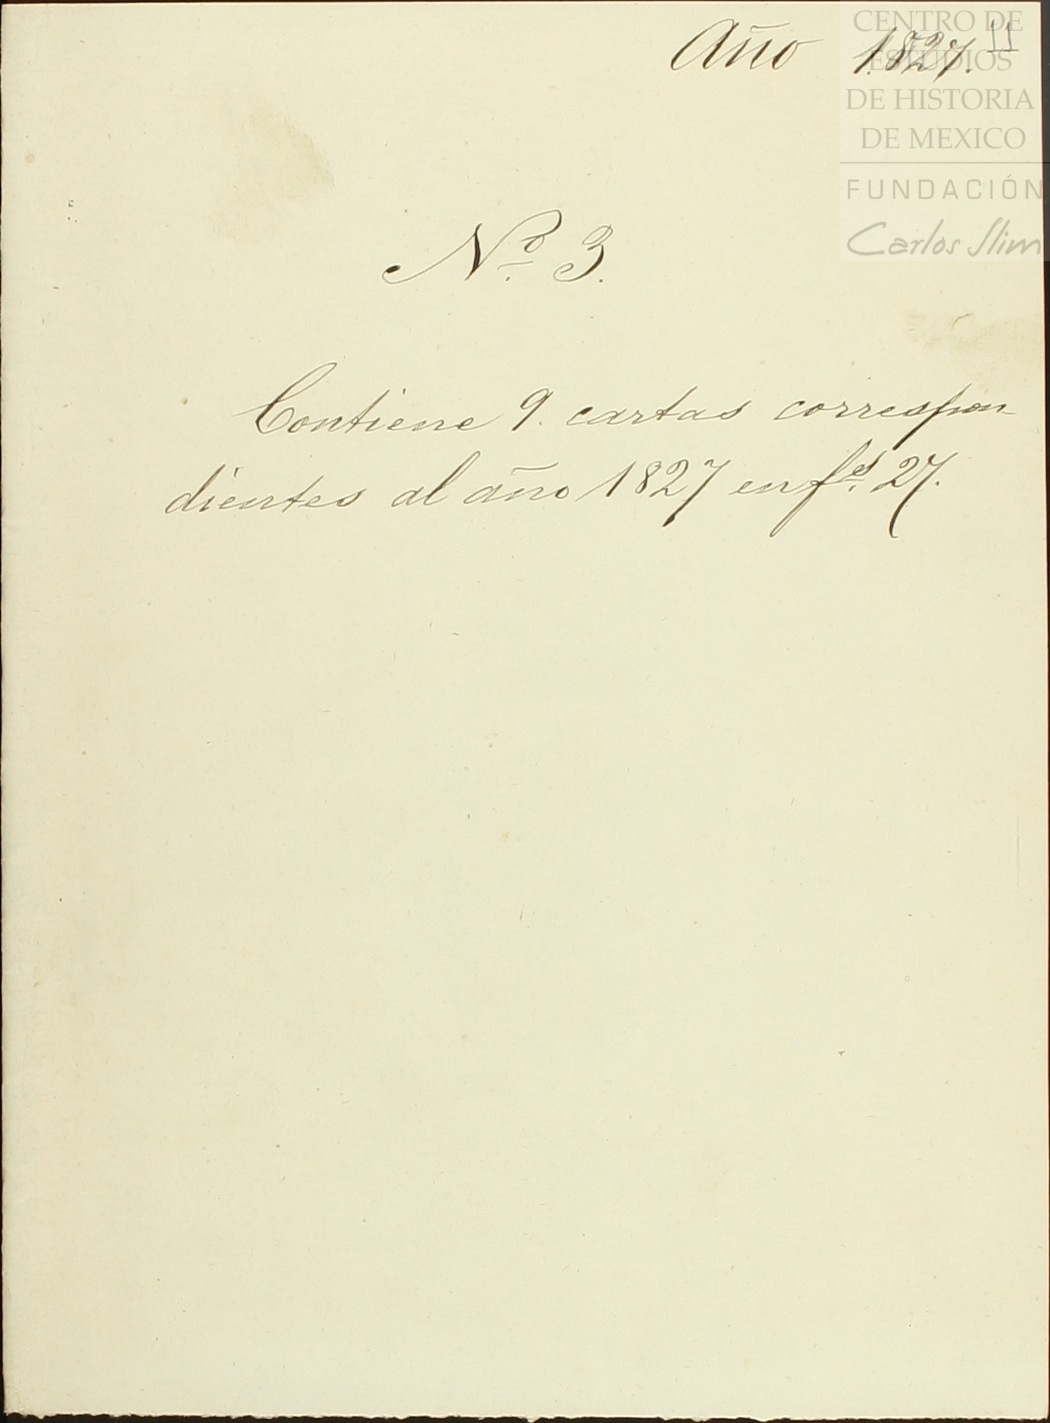 Año 1827. 11
CENTRO DE
ESTUDIOS
DE HISTORIA
DE MEXICO
FUNDACIÓN
Carlos Slim
Nº 3.
Contiene 9. cartas correspon
dientes al año 1827 en fs. 27.